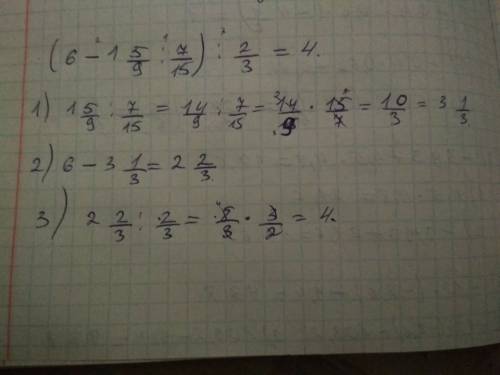 (6 − 1 5/9 : 7/15) : 2/3 = 4.
1) 1 5/9 : 7/15 = 14/9 : 7/15 = 14/9 · 15/7 = 10/3 = 3 1/3
2) 6 − 3 1/3 = 2 2/3
3) 2 2/3 : 2/3 = 8/3 · 3/2 = 4.